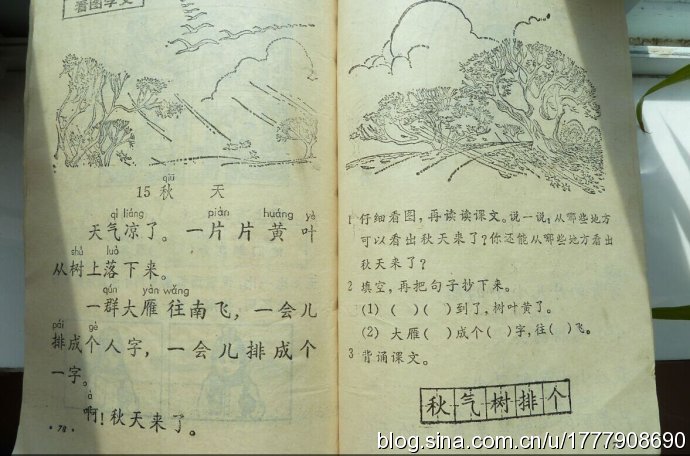 看图学文
qiū
15 秋 天
qì liáng piàn huáng yè
天气凉了。一片片黄叶
shù luò
从树上落下来。
qún yàn wǎng
一群大雁往南飞，一会儿
pái gè
排成个人字，一会儿排成个
一字。
à
啊！秋天来了。
·78·
1 仔细看图，再读读课文。说一说：从哪些地方
可以看出秋天来了？你还能从哪些地方看出
秋天来了？
2 填空，再把句子抄下来。
(1) ( ) ( )到了，树叶黄了。
(2) 大雁( )成个( )字，往( )飞。
3 背诵课文。
秋气树排个
blog.sina.com.cn/u/1777908690